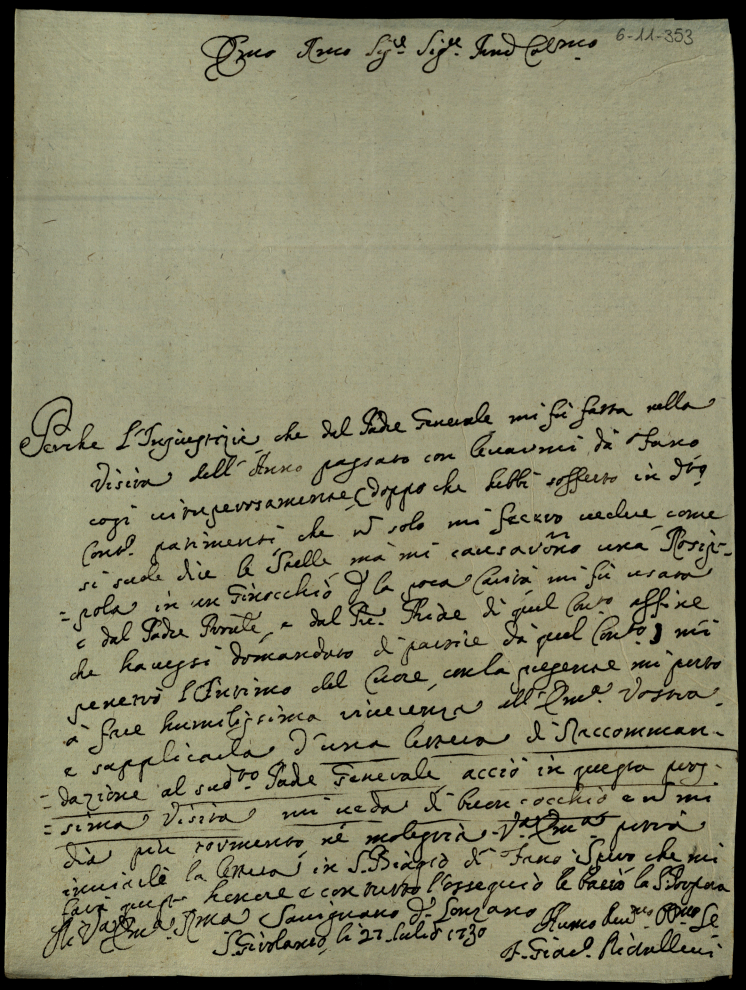 6-11-353
Emo Rmo Sig.e Sig.e Pnd Colmo
Perche l'Ingiustizie che dal Padre Generale mi fù fatta nella
Visita dell'Anno passato con levarmi dà Fano
così vituperosamente, doppo che hebbi sofferto in d.to
Conv.o patimenti che n solo mi fecero vedere come
si suole dire le Stelle ma mi causavono una Rosip-
=pola in un Ginocchio p la poca Carità mi fù usata
e dal Padre Prvle, e dal Pre. di quel Conto affine
che havessi domandato di partire dà quel Conto, mi
penetrò l'Intimo del Cuore, con la presente mi porto
à fare humilissima riverenza all'Em.a Vostra
e supplicarla d'una lettera di Raccomman-
=dazione al sud.to Padre Generale acciò in questa pros-
=sima Visita mi veda di buon occhio e n mi
dia più tormento nè molestia. V.a Em.a potrà
inviare la lettera in S. Biagio di Fano. Spero che mi
farà questo honore e con tutto l'ossequio le bacio la S. Porpora
Di V.a Em.a Rma Savignano d. Longiano
S. Girolamo, li 27 Luglio 1730
Humo Dev.mo Obmo Se
F. Giac.o Ridolleni